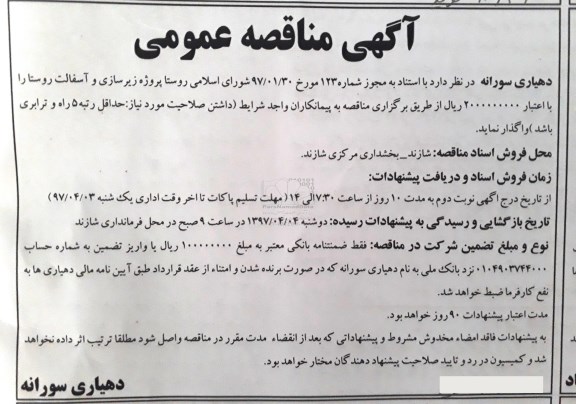 آگهی مناقصه عمومی
دهیاری سورانه در نظر دارد با استناد به مجوز شماره ۱۲۳ مورخ ۹۷/۰۱/۳۰ شورای اسلامی روستا پروژه زیرسازی و آسفالت روستا را
با اعتبار ۲۰۰۰۰۰۰۰۰۰ ریال از طریق برگزاری مناقصه به پیمانکاران واجد شرایط (داشتن صلاحیت مورد نیاز:حداقل رتبه۵ راه و ترابری
باشد )واگذار نماید.
محل فروش اسناد مناقصه: شازند_بخشداری مرکزی شازند.
زمان فروش اسناد و دریافت پیشنهادات:
از تاریخ درج آگهی نوبت دوم به مدت ۱۰ روز از ساعت ۷:۳۰الی ۱۴( مهلت تسلیم پاکات تا اخر وقت اداری یک شنبه ۹۷/۰۴/۰۳)
تاریخ بازگشایی و رسیدگی به پیشنهادات رسیده: دوشنبه ۱۳۹۷/۰۴/۰۴ در ساعت ۹ صبح در محل فرمانداری شازند
نوع و مبلغ تضمین شرکت در مناقصه: فقط ضمنتنامه بانکی معتبر به مبلغ ۱۰۰۰۰۰۰۰۰ ریال یا واریز تضمین به شماره حساب
۰۱۰۴۹۰۳۷۴۴۰۰۰ نزد بانک ملی به نام دهیاری سورانه که در صورت برنده شدن و امتناء از عقد قرارداد طبق آیین نامه مالی دهیاری ها به
نفع کارفرما ضبط خواهد شد.
مدت اعتبار پیشنهادات ۹۰ روز خواهد بود.
به پیشنهادات فاقد امضاء مخدوش مشروط و پیشنهاداتی که بعد از انقضاء مدت مقرر در مناقصه واصل شود مطلقا ترتیب اثر داده نخواهد
شد و کمیسیون در رد و تایید صلاحیت پیشنهاد دهندگان مختار خواهد بود.
دهیاری سورانه